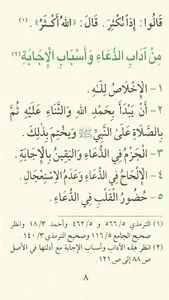 قَالُوا: إِذاً نُكْثِرَ. قَالَ: «اللهُ أَكْثَرُ». (١)
مِنْ آدَابِ الدُّعَاءِ وَأَسْبَابِ الْإِجَابَةِ (٢)
١- الْإِخْلَاصُ لِلَّهِ.
٢- أَنْ يَبْدَأَ بِحَمْدِ اللهِ وَالثَّنَاءِ عَلَيْهِ ثُمَّ
بِالصَّلَاةِ عَلَى النَّبِيِّ ﷺ وَيَخْتِمَ بِذَلِكَ.
٣- الْجَزْمُ فِي الدُّعَاءِ وَالْيَقِينُ بِالْإِجَابَةِ.
٤- الْإِلْحَاحُ فِي الدُّعَاءِ وَعَدَمُ الْاسْتِعْجَالِ.
٥- حُضُورُ الْقَلْبِ فِي الدُّعَاءِ.
(١) الترمذي ٥٦٦/٥ و ٤٦٢/٥ وأحمد ١٨/٣ وانظر
صحيح الجامع ١١٦/٥ وصحيح الترمذي ١٤٠/٣.
(٢) انظر هذه الآداب وأسباب الإجابة مع أدلتها في الأصل
ص ٨٨ إلى ص ١٢١.
٨